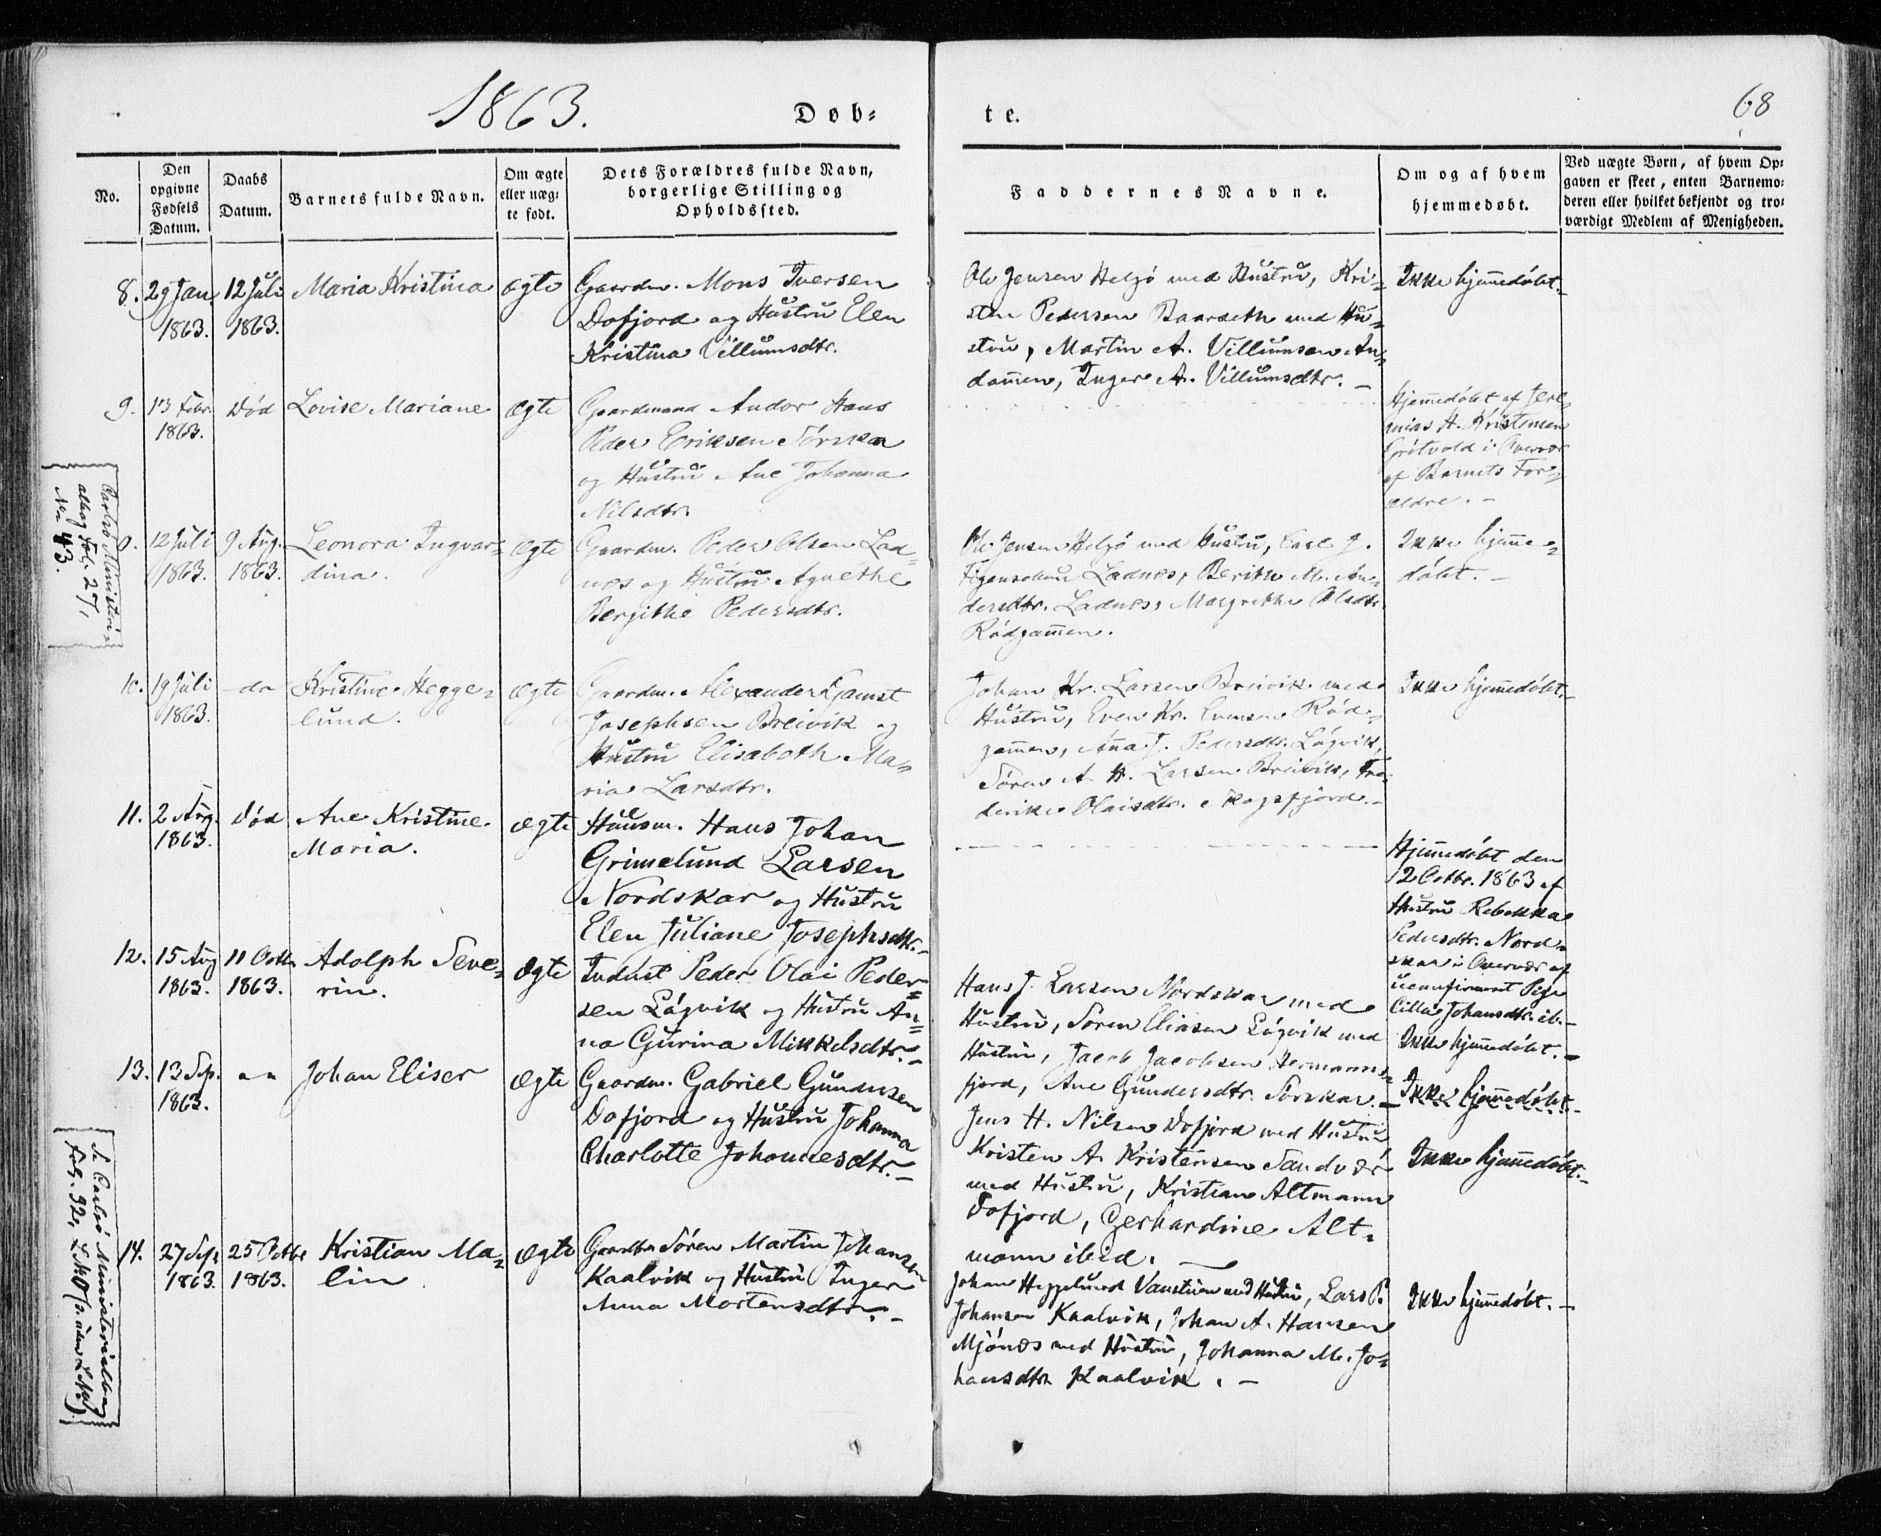 1863.
Døb-
te.
68
No.
Den opgivne Fødsels Datum.
Daabs Datum.
Barnets fulde Navn.
Om ægte eller uæg-
te født.
Dets Forældres fulde Navn,
borgerlige Stilling og
Opholdssted.
Faddernes Navne.
Om og af hvem
hjemmedøbt.
Ved uægte Børn, af hvem Op-
gaven er skeet, enten Barnemo-
deren eller hvilket bekjendt og tro-
værdigt Medlem af Menigheden.
8. 29 Jan. 1863.
12 Juli 1863.
Maria Kristina
ægte
Gaardm. Mons Iversen
Dafjord og Hustru Elen
Kristina Villumsdtr.
Ole Jensen Helgø med Hustru, Kri-
sten Pedersen Baarseth med Hu-
stru, Martin A. Villumsen An-
damen, Inger A. Villumsdtr. –
Ikke hjemmedøbt. –
9. 13 Febr. 1863.
Død
Lovise Mariane
ægte
Gaardmand Andor Hans
Peder Eriksen Sørskar
og Hustru Ane Johanna
Nilsdtr.
Hjemmedøbt af Jere-
mias H. Kristensen
Grøtvold i Overvær
af Barnets For-
ældre. –
Carlsø Ministeri-
albog Fol. 271,
No 43.
12 Juli 1863.
9 Aug. 1863.
Leonora Ingvar-
dina.
ægte
Gaardm. Peder Olsen Lad-
næs og Hustru Agnethe
Bergithe Pedersdtr.
Ole Jensen Helgø med Hustru, Carl J.
Figenschau Ladnæs, Berith M. An-
dersdtr. Ladnæs, Margrethe Olsdtr.
Rødgammen.
Ikke hjemme-
døbt. –
10. 19 Juli 1863.
do
Kristine Hegge-
lund.
ægte
Gaardm. Alexander Gamst
Josephsen Breivik og
Hustru Elisabeth Ma-
ria Larsdtr.
Johan Kr. Larsen Breivik med
Hustru, Even Kr. Evensen Rød-
gammen, Anna J. Pedersdtr. Løgvik,
Søren A. H. Larsen Breivik, Fre-
derike Olaisdtr. Skogsfjord. –
Ikke hjemmedøbt. –
11. 2 Aug. 1863.
Død
Ane Kristine
Maria.
ægte
Husm. Hans Johan
Grimelund Larsen
Nordskar og Hustru
Elen Juliane Josephsdtr. –
Hjemmedøbt den
12 Octbr. 1863 af
Hustru Rebekka
Pedersdtr. Nord-
skar i Overvær af
uconfirmeret Pige
Cilla Johansdtr. ib. –
12. 15 Aug 1863.
11 Octbr 1863.
Adolph Seve-
rin.
ægte
Inderst Peder Olai Peder-
sen Løgvik og Hustru An-
na Gurina Mikkelsdtr. –
Hans J. Larsen Nordskar med
Hustru, Søren Eliasen Løgvik med
Hustru, Jacob Jacobsen Hermans-
fjord, Ane Gundersdtr. Sørskar. –
Ikke hjemmedøbt. –
Ikke hjemmedøbt. –
13. 13 Sep. 1863.
Johan Eliser
ægte
Gaardm. Gabriel Gundersen
Dafjord og Hustru Johanna
Charlotte Johannesdtr. –
Jens H. Nilsen Dafjord med Hustru
Kristen A. Kristensen Sandvær
med Hustru, Kristian Altmann
Dafjord, Gerhardine Alt-
mann ibid.
Ikke hjemmedøbt. –
Se Carlsø Ministerialbog
Fol. 92,
14. 27 Sep. 1863.
25 Octbr 1863.
Kristian Ma-
lin
ægte
Søren Martin Johansen
Kaalvik og Hustru Inger
Anna Mortensdtr. –
Johan Heggelund Vanstuen med Hustru, Lars P.
Johansen Kaalvik, Johan A. Hansen
Mjønæs med Hustru, Johanna M. Jo-
hansdtr Kaalvik. –
Ikke hjemmedøbt. –